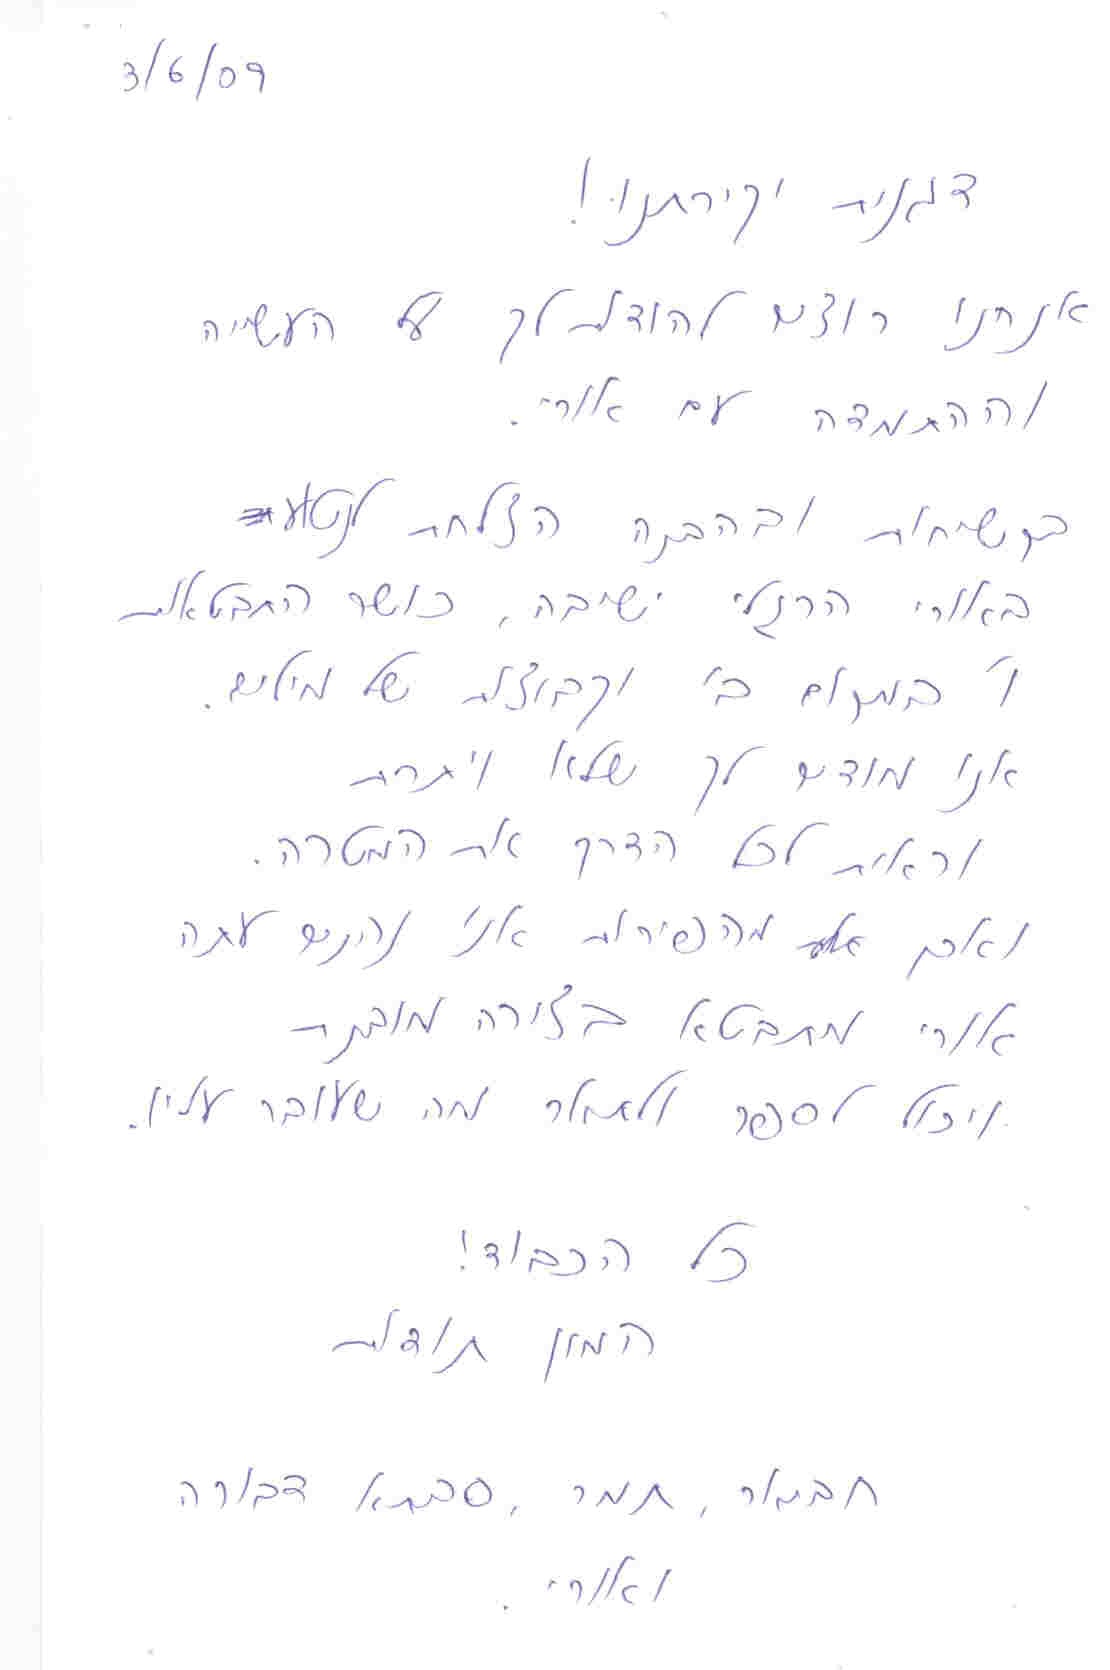 3/6/09
דגנית יקירתנו!
אנחנו רוצים להודות לך על העשייה
וההתמדה עם אורי.
בקשיחות ובהבנה הצלחת לנטוע
באורי הרגלי ישיבה, כושר התבטאות
ו' במקום ב' וקבוצות של מילים.
אנו מודים לך שלא ויתרת
וראית לכל הדרך את המטרה.
ואכן מהפירות אנו נהנים עתה
אורי מתבטא בצורה מובנת
ויכול לספר ולתאר מה שעובר עליו.
כל הכבוד!
המון תודות
תמר, סבתא דבורה
ואורי.